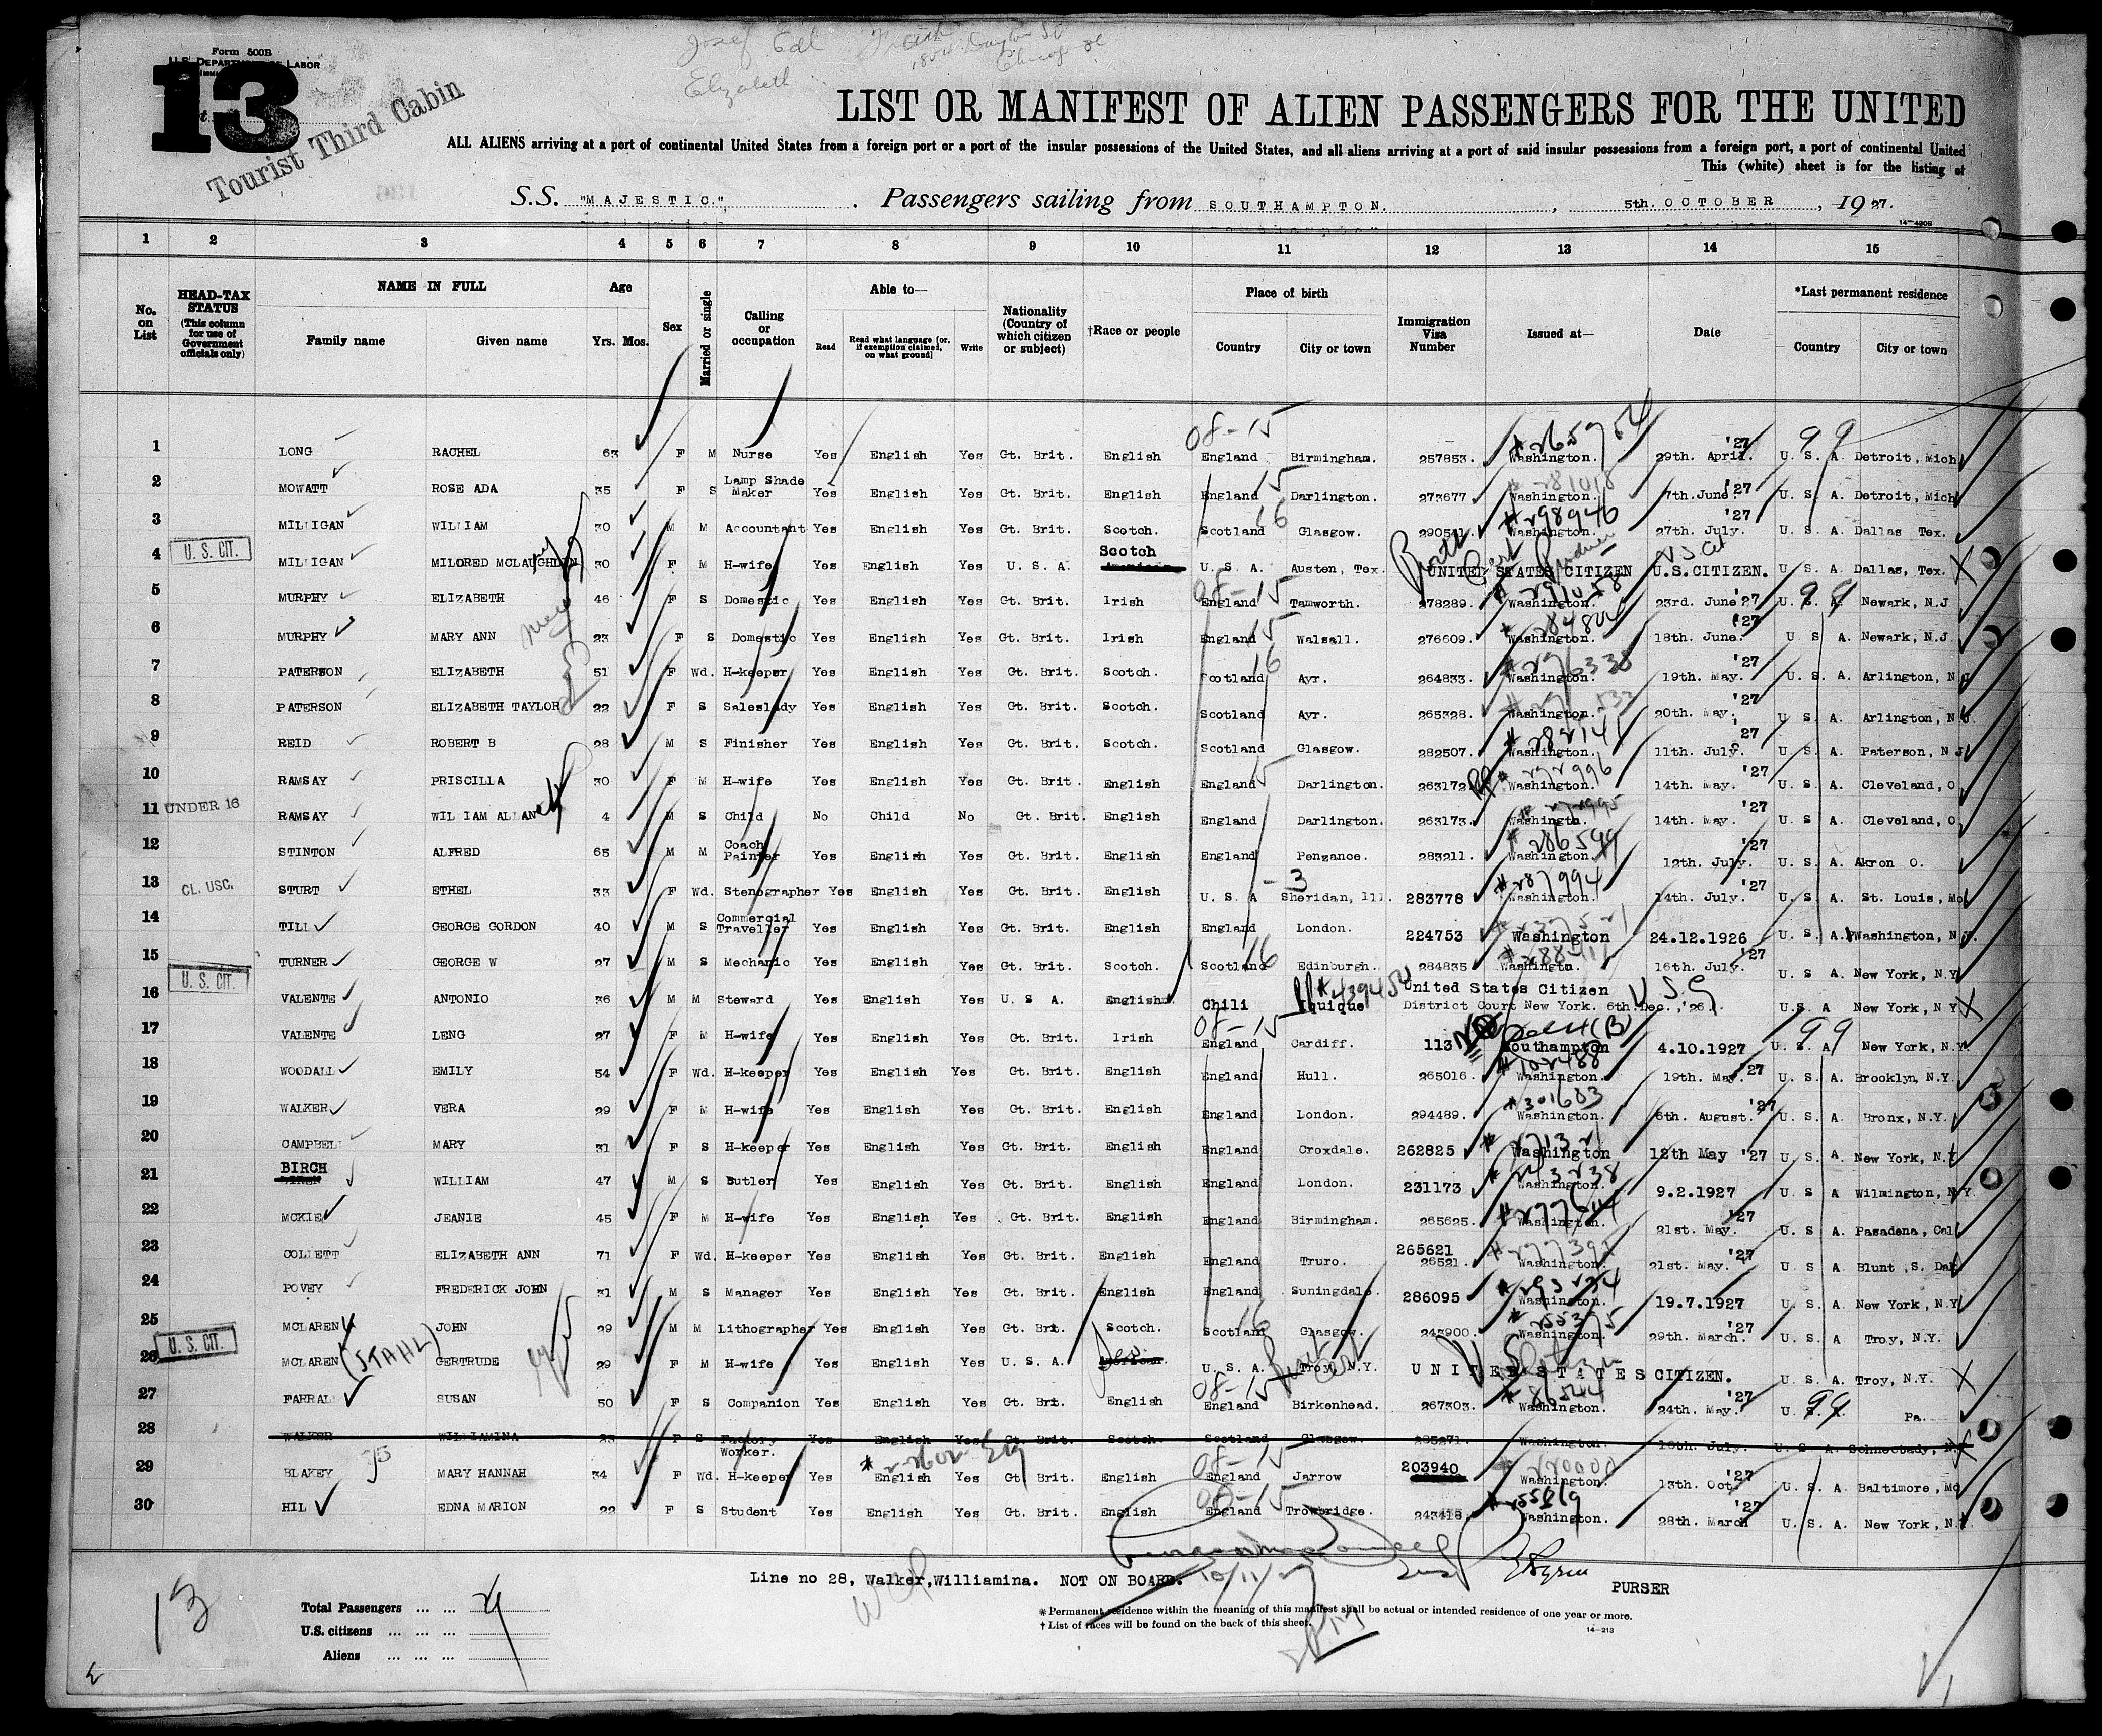 Josef Edl Frank
Elizabeth
Form 500B
U.S. DEPARTMENT OF LABOR
13
Tourist Third Cabin
LIST OR MANIFEST OF ALIEN PASSENGERS FOR THE UNITED
ALL ALIENS arriving at a port of continental United States from a foreign port or a port of the insular possessions of the United States, and all aliens arriving at a port of said insular possessions from a foreign port, a port of continental United
This (white) sheet is for the listing of
S.S. "MAJESTIC.", Passengers sailing from SOUTHAMPTON. , 5th. OCTOBER , 1927.
14-430B
1 2 3 4 5 6 7 8 9 10 11 12 13 14 15
No. on List
HEAD-TAX STATUS (This column for use of Government officials only)
NAME IN FULL
Family name Given name
Age
Yrs. Mos.
Sex
Married or single
Calling or occupation
Able to—
Read Read what language [or, if exemption claimed, on what ground] Write
Nationality (Country of which citizen or subject)
†Race or people
Place of birth
Country City or town
Immigration Visa Number
Issued at—
Date
*Last permanent residence
Country City or town
1 LONG RACHEL 63 F M Nurse Yes English Yes Gt. Brit. English England Birmingham. 257853. Washington. 29th. April. '27 U. S. A. Detroit, Mich
2 MOWATT ROSE ADA 35 F S Lamp Shade Maker Yes English Yes Gt. Brit. English England Darlington. 273677 Washington. 7th. June '27 U. S. A. Detroit, Mich
3 MILLIGAN WILLIAM 30 M M Accountant Yes English Yes Gt. Brit. Scotch. Scotland Glasgow. Washington. 27th. July. '27 U. S. A. Dallas Tex.
4 U. S. CIT. MILLIGAN MILDRED MCLAUGHLIN 30 F M H-wife Yes English Yes U. S. A. Scotch U. S. A. Austen, Tex. UNITED STATES CITIZEN U.S.CITIZEN. U. S. A. Dallas, Tex.
5 MURPHY ELIZABETH 46 F S Domestic Yes English Yes Gt. Brit. Irish England Tamworth. 278289. Washington. 23rd. June '27 U. S. A. Newark, N.J
6 MURPHY MARY ANN 23 F S Domestic Yes English Yes Gt. Brit. Irish England Walsall. 276609. Washington. 18th. June. '27 U S A. Newark, N.J.
7 PATERSON ELIZABETH 51 F Wd. H-keeper Yes English Yes Gt. Brit Scotch. Scotland Ayr. 264833. Washington. 19th. May. '27 U. S A. Arlington, N J
8 PATERSON ELIZABETH TAYLOR 22 F S Saleslady Yes English Yes Gt. Brit. Scotch. Scotland Ayr. 265328. Washington. 20th. May. '27 U S. A. Arlington, N J.
9 REID ROBERT B 28 M S Finisher Yes English Yes Gt. Brit. Scotch. Scotland Glasgow. 282507. Washington. 11th. July. '27 U S A. Paterson, N J
10 RAMSAY PRISCILLA 30 F M H-wife Yes English Yes Gt. Brit English England Darlington. 263172 Washington. 14th. May. '27 U. S A. Cleveland, O.
11 UNDER 16 RAMSAY WILLIAM ALLAN 4 M S Child No Child No Gt. Brit. English England Darlington. 263173. Washingtn. 14th. May. '27 U S A. Cleveland, O.
12 STINTON ALFRED 65 M M Coach Painter Yes English Yes Gt. Brit English England Penzance. 283211. Washington. 12th. July. '27 U. S A. Akron O.
13 CL. USC. STURT ETHEL 33 F Wd. Stenographer Yes English Yes Gt. Brit English U. S. A Sheridan, Ill. 283778 Washington. 14th. July. '27 U. S A. St. Louis, Mo
14 TILL GEORGE GORDON 40 M S Commercial Traveller Yes English Yes Gt. Brit. English England London. 224753 Washington 24.12.1926 U. S A. Washington, N
15 TURNER GEORGE W 27 M S Mechanic Yes English Yes Gt. Brit. Scotch. Scotland Edinburgh. 284835 Washingtn. 16th. July. '27 U. S A. New York, N.Y
16 U. S. CIT. VALENTE ANTONIO 36 M M Steward Yes English Yes U. S A. English Chili Iquique #439454 United States Citizen District Court New York. 6th.Dec.,'26. U.S.A New York, N Y
17 VALENTE LENG 27 F M H-wife Yes English Yes Gt. Brit. Irish England Cardiff. 113 Southampton 4.10.1927 U. S. A New York, N.Y.
18 WOODALL EMILY 54 F Wd. H-keeper Yes English Yes Gt. Brit English England Hull. 265016. #102488 Washington. 19th. May. '27 U. S A. Brooklyn, N.Y.
19 WALKER VERA 29 F M H-wife Yes English Yes Gt. Brit. English England London. 294489. #301683 Washington. 6th. August. '27 U. S A. Bronx, N.Y.
20 CAMPBELL MARY 31 F S H-keeper Yes English Yes Gt. Brit. English England Croxdale. 262825 Washington 12th May '27 U. S A. New York, N.Y
21 BIRCH WILLIAM 47 M S Butler Yes English Yes Gt. Brit. English England London. 231173 Washington. 9.2.1927 U. S A Wilmington, N Y.
22 MCKIE JEANIE 45 F M H-wife Yes English Yes Gt. Brit. English England Birmingham. 265625. Washington. 21st. May. '27 U. S A. Pasadena, Cal
23 COLLETT ELIZABETH ANN 71 F Wd. H-keeper Yes English Yes Gt. Brit. English England Truro. 265621 26521. Washington. 21st. May. '27 U S A Blunt, S. Dak
24 POVEY FREDERICK JOHN 31 M S Manager Yes English Yes Gt. Brit. English England Suningdale. 286095 Washington. 19.7.1927 U. S A. New York, N.Y
25 MCLAREN JOHN 29 M M Lithographer Yes English Yes Gt. Brit. Scotch. Scotland Glasgow. 243900. Washington. 29th. March. '27 U. S A Troy, N.Y.
26 U. S. CIT. MCLAREN (STAHL) GERTRUDE 29 F M H-wife Yes English Yes U. S. A. U. S. A. Troy, N.Y. UNITED STATES CITIZEN. U. S A. Troy, N.Y.
27 FARRALL SUSAN 50 F S Companion Yes English Yes Gt. Brit. English England Birkenhead. 267303. #86544 Washington. 24th. May. '27 U. S. A. Pa.
28 WALKER WILLIAMINA 23 F S Factory Worker. Yes English Yes Gt. Brit. Scotch. Scotland Glasgow. 285271. Washington. 16th. July. U S A. Schnectady, N.Y
29 BLAKEY MARY HANNAH 34 F Wd. H-keeper Yes English Yes Gt. Brit. English England Jarrow 203940 Washington. 13th. Oct. '27 U. S A. Baltimore, Md
30 HILL EDNA MARION 22 F S Student Yes English Yes Gt. Brit. English England Trowbridge. Washington. 28th. March '27 U. S A. New York, N.Y.
10/11/27
Line no 28, Walker,Williamina. NOT ON BOARD.
PURSER
13
Total Passengers ... ...
U.S. citizens ... ...
Aliens ... ... ...
*Permanent residence within the meaning of this manifest shall be actual or intended residence of one year or more.
† List of races will be found on the back of this sheet.
14-213